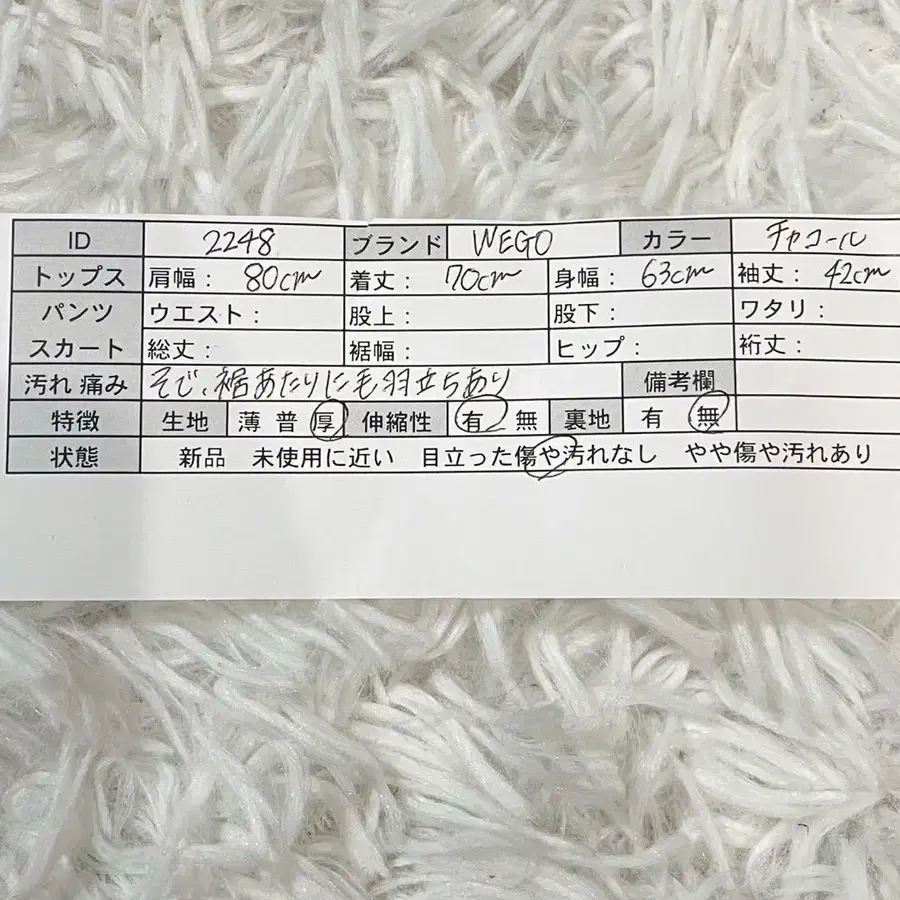 ID 2248 ブランド WEGO カラー チャコール
トップス 肩幅： 80cm 着丈： 70cm 身幅： 63cm 袖丈： 42cm
パンツ ウエスト： 股上： 股下： ワタリ：
スカート 総丈： 裾幅： ヒップ： 裄丈：
汚れ 痛み そで、裾あたりに毛羽立ちあり 備考欄
特徴 生地 薄 普 厚 伸縮性 有 無 裏地 有 無
状態 新品 未使用に近い 目立った傷や汚れなし やや傷や汚れあり